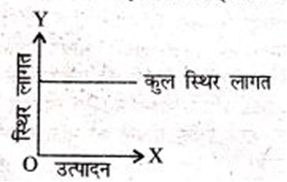 Y
स्थिर लागत
कुल स्थिर लागत
O
X
उत्पादन